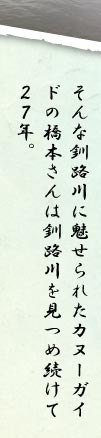 そんな釧路川に魅せられたカヌーガイ
ドの橋本さんは釧路川を見つめ続けて
27年。